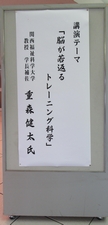 講演テーマ
「脳が若返る
トレーニング科学」
関西福祉科学大学
教授　学長補佐
重森健太氏